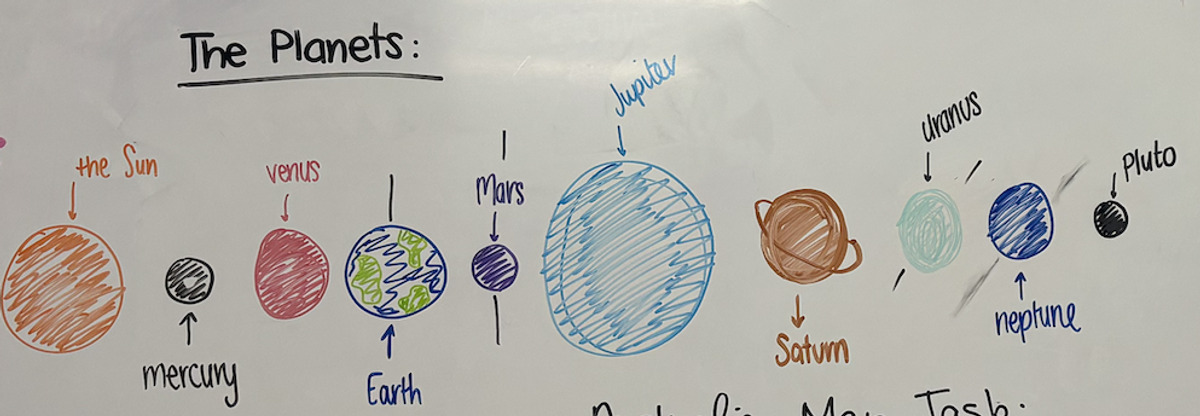 The Planets:
the Sun
mercury
venus
Earth
Mars
Jupiter
Saturn
Uranus
neptune
Pluto
Task: